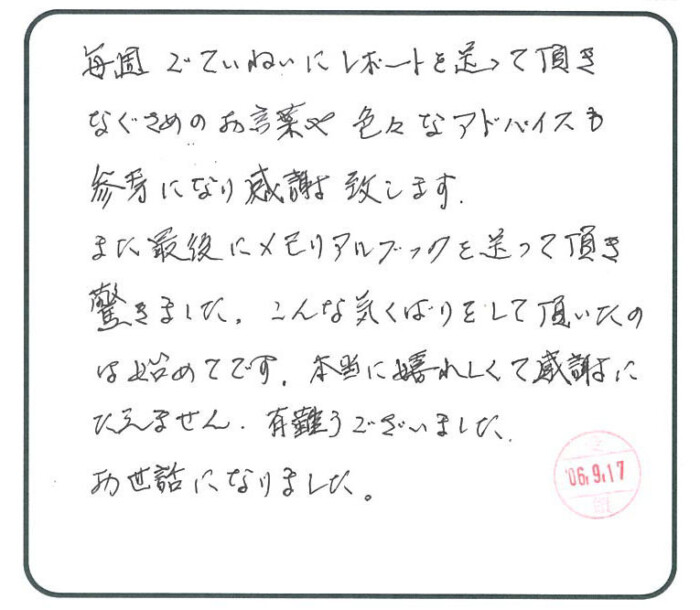 毎週ごていねいにレポートを送って頂き
なぐさめのお言葉や色々なアドバイスも
参考になり感謝致します.
また最後にメモリアルブックを送って頂き
驚きました。こんな気くばりをして頂いたの
は始めてです。本当に嬉れしくて感謝に
たえません.有難うございました.
お世話になりました。
'06.9.17